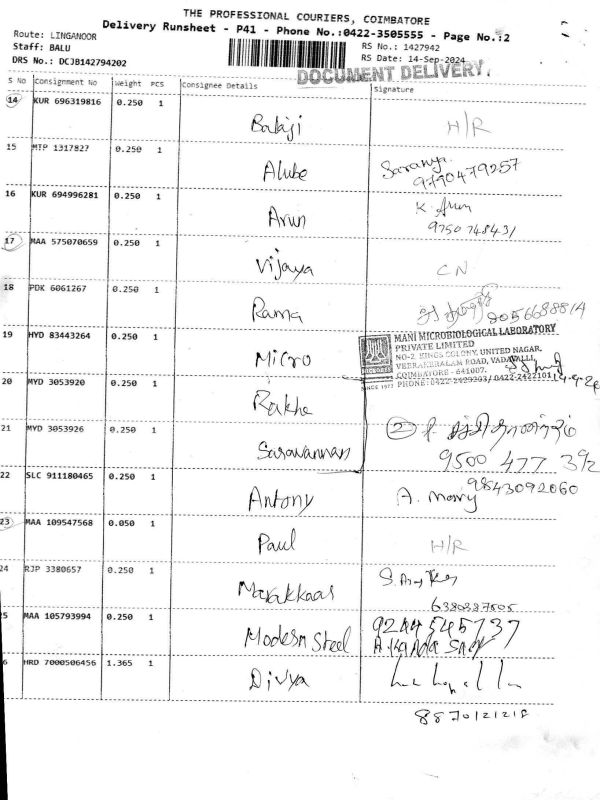 THE PROFESSIONAL COURIERS, COIMBATORE
Delivery Runsheet - P41 - Phone No.:0422-3505555 - Page No.:2
Route: LINGANOOR
RS No.: 1427942
Staff: BALU
RS Date: 14-Sep-2024
DRS No.: DCJB142794202
DOCUMENT DELIVERY.
S No Consignment No Weight PCS Consignee Details Signature
14 KUR 696319816 0.250 1 Balaji H/R
15 MTP 1317827 0.250 1 Saranya
9790479257
16 KUR 694996281 0.250 1 Arun K. Arun
9750748431
17 MAA 575070659 0.250 1 Vijaya CN
18 PDK 6061267 0.250 1 Rama 9056688814
19 HYD 83443264 0.250 1 Micro
MANI MICROBIOLOGICAL LABORATORY
PRIVATE LIMITED
NO-2, KINGS COLONY, UNITED NAGAR,
VEERAKERALAM ROAD, VADAVALLI,
COIMBATORE - 641007.
PHONE: 0422-2429203/ 0422-2422101
SINCE 1977
20 MYD 3053920 0.250 1
21 MYD 3053926 0.250 1 Sarawannan 2
9500 477 392
22 SLC 911180465 0.250 1 Antony A. mary 9843092060
23 MAA 109547568 0.050 1 Paul H/R
24 RJP 3380657 0.250 1 Marakkaar
6380387505
5 MAA 105793994 0.250 1 Modern Steel 9244545737
6 HRD 7000506456 1.365 1 Divya
8870121218